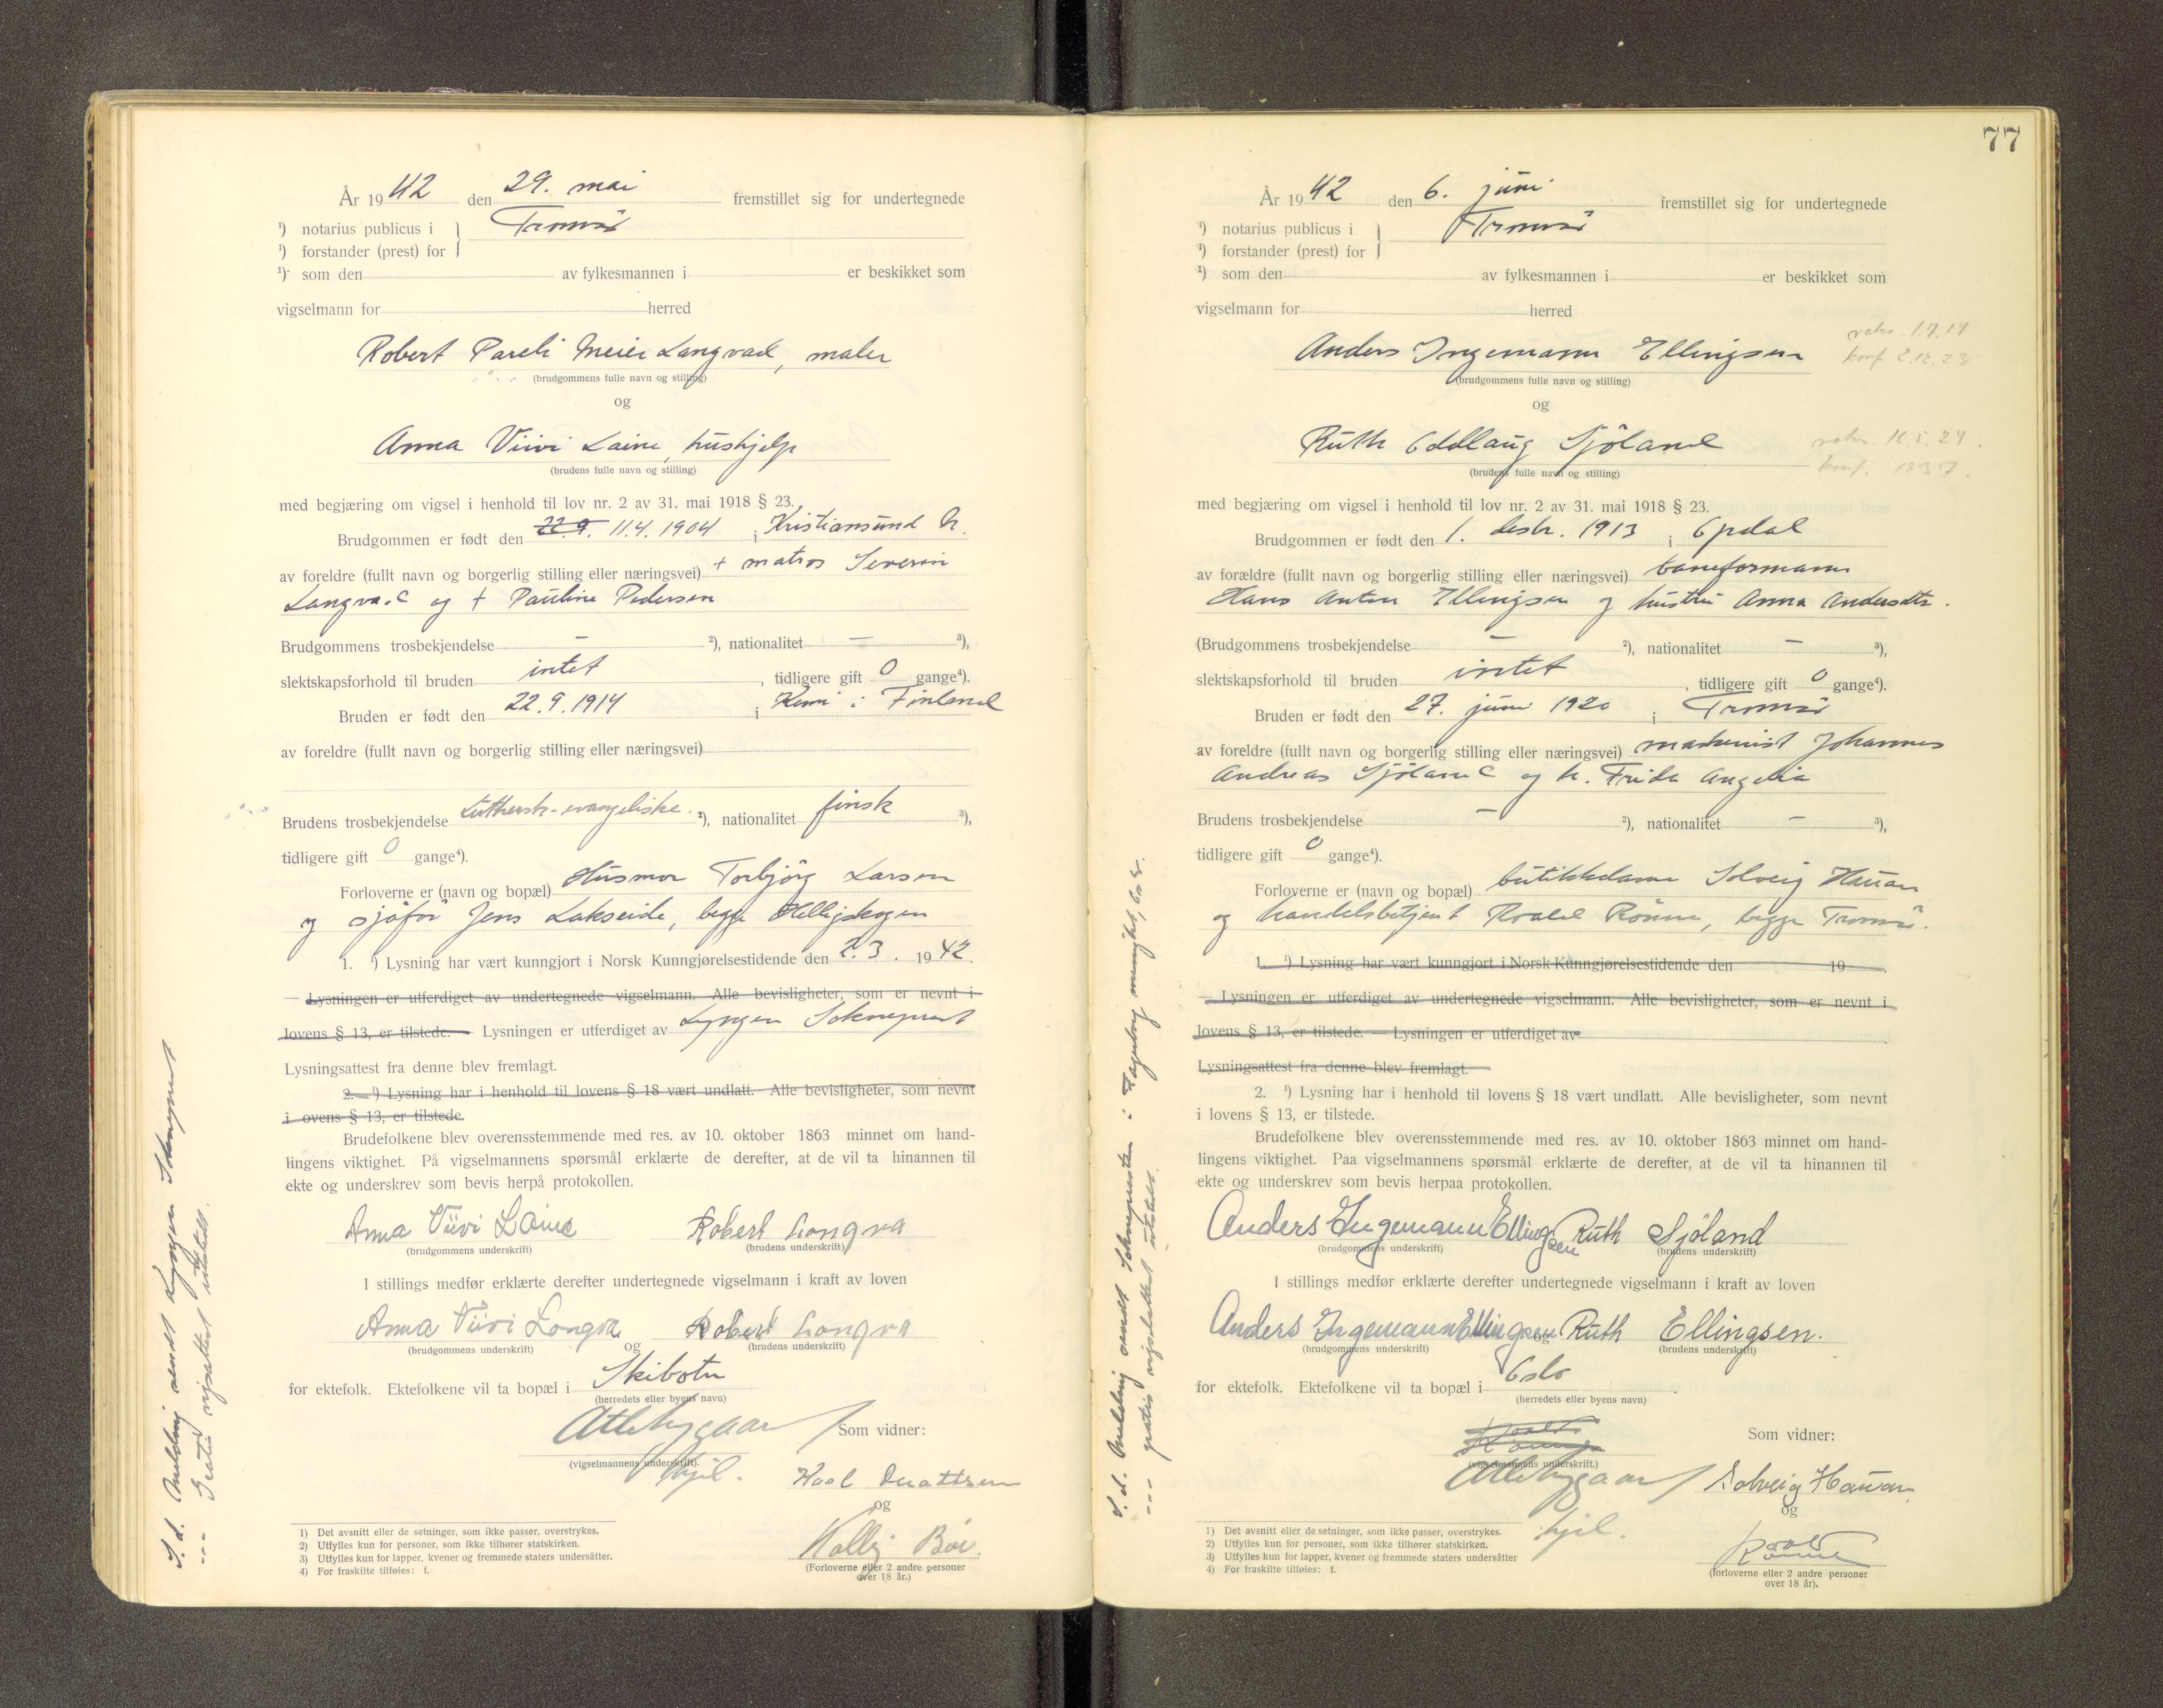 År 1942 den 29. mai fremstillet sig for undertegnede
¹) notarius publicus i } Tromsö
¹) forstander (prest) for
¹) som den av fylkesmannen i er beskikket som
vigselmann for herred
Robert Pareli Meier Langvad, maler
(brudgommens fulle navn og stilling)
og
Anna Viivi Laine, hushjelp
(brudens fulle navn og stilling)
med begjæring om vigsel i henhold til lov nr. 2 av 31. mai 1918 § 23.
Brudgommen er født den 22.9. 11.4.1904 i Kristiansund N.
av foreldre (fullt navn og borgerlig stilling eller næringsvei) + matros Severin
Langvad og + Pauline Pedersen
Brudgommens trosbekjendelse — ²), nationalitet — ³),
slektskapsforhold til bruden intet, tidligere gift 0 gange⁴).
Bruden er født den 22.9.1914 i Kemi i Finland
av foreldre (fullt navn og borgerlig stilling eller næringsvei)
Brudens trosbekjendelse Luthersk-evangeliske ²), nationalitet finsk ³),
tidligere gift 0 gange⁴).
Forloverne er (navn og bopæl) Husmor Torbjörg Larsen
og sjåför Jens Lakseide, begge Helligskogen
1. ¹) Lysning har vært kunngjort i Norsk Kunngjørelsestidende den 2.3. 1942.
— Lysningen er utferdiget av undertegnede vigselmann. Alle bevisligheter, som er nevnt i
lovens § 13, er tilstede. — Lysningen er utferdiget av Lyngen Sokneprest
Lysningsattest fra denne blev fremlagt.
2. ¹) Lysning har i henhold til lovens § 18 vært undlatt. Alle bevisligheter, som nevnt
i ovens § 13, er tilstede.
Brudefolkene blev overensstemmende med res. av 10. oktober 1863 minnet om hand-
lingens viktighet. På vigselmannens spørsmål erklærte de derefter, at de vil ta hinannen til
ekte og underskrev som bevis herpå protokollen.
Anna Viivi Laine Robert Longva
(brudgommens underskrift) (brudens underskrift)
I stillings medfør erklærte derefter undertegnede vigselmann i kraft av loven
Anna Viivi Longva og Robert Longva
(brudgommens underskrift) (brudens underskrift)
for ektefolk. Ektefolkene vil ta bopæl i Skibotn
(herredets eller byens navn)
Som vidner:
(vigselmannens underskrift).
hjil.
og
(Forloverne eller 2 andre personer
over 18 år.)
1) Det avsnitt eller de setninger, som ikke passer, overstrykes.
2) Utfylles kun for personer, som ikke tilhører statskirken.
3) Utfylles kun for lapper, kvener og fremmede staters undersåtter.
4) For fraskilte tilføies: f.
S.d. Melding sendt Lyngen Sokneprest
--- Gratis vigselattest utstedt.
77
År 1942 den 6. juni fremstillet sig for undertegnede
¹) notarius publicus i } Tromsö
¹) forstander (prest) for
¹) som den av fylkesmannen i er beskikket som
vigselmann for herred
Anders Ingemann Ellingsen
(brudgommens fulle navn og stilling)
og
Ruth Oddlaug Sjöland
(brudens fulle navn og stilling)
med begjæring om vigsel i henhold til lov nr. 2 av 31. mai 1918 § 23.
Brudgommen er født den 1. desbr. 1913 i Opdal
av forældre (fullt navn og borgerlig stilling eller næringsvei) baneformann
Hans Anton Ellingsen og hustru Anna Andersdtr.
(Brudgommens trosbekjendelse — ²), nationalitet — ³),
slektskapsforhold til bruden intet, tidligere gift 0 gange⁴).
Bruden er født den 27. juni 1920 i Tromsö
av foreldre (fullt navn og borgerlig stilling eller næringsvei) maskinist Johannes
Andreas Sjöland og h. Frida Angelia
Brudens trosbekjendelse — ²), nationalitet — ³),
tidligere gift 0 gange⁴).
Forloverne er (navn og bopæl) butikkdame Solveig Hauan
og handelsbetjent Roald Rönne, begge Tromsö.
1. ¹) Lysning har vært kunngjort i Norsk Kunngjørelsestidende den 19 .
— Lysningen er utferdiget av undertegnede vigselmann. Alle bevisligheter, som er nevnt i
lovens § 13, er tilstede. — Lysningen er utferdiget av
Lysningsattest fra denne blev fremlagt.
2. ¹) Lysning har i henhold til lovens § 18 vært undlatt. Alle bevisligheter, som nevnt
i lovens § 13, er tilstede.
Brudefolkene blev overensstemmende med res. av 10. oktober 1863 minnet om hand-
lingens viktighet. Paa vigselmannens spørsmål erklærte de derefter, at de vil ta hinannen til
ekte og underskrev som bevis herpaa protokollen.
Anders Ingemann Ellingsen Ruth Sjöland
(brudgommens underskrift) (brudens underskrift)
I stillings medfør erklærte derefter undertegnede vigselmann i kraft av loven
Anders Ingemann Ellingsen og Ruth Ellingsen.
(brudgommens underskrift) (brudens underskrift)
for ektefolk. Ektefolkene vil ta bopæl i Oslo
(herredets eller byens navn)
Roald Rönne Som vidner:
(vigselmannens underskrift.)
Solveig Hauan
hjil. og
Roald Rönne
(forloverne eller 2 andre personer
over 18 år).
1) Det avsnitt eller de setninger, som ikke passer, overstrykes.
2) Utfylles kun for personer, som ikke tilhører statskirken.
3) Utfylles kun for lapper, kvener og fremmede staters undersåtter
4) For fraskilte tilføies: f.
S.d. Melding sendt Soknepresten i Fagerborg menighet, Oslo.
--- gratis vigselattest utstedt.